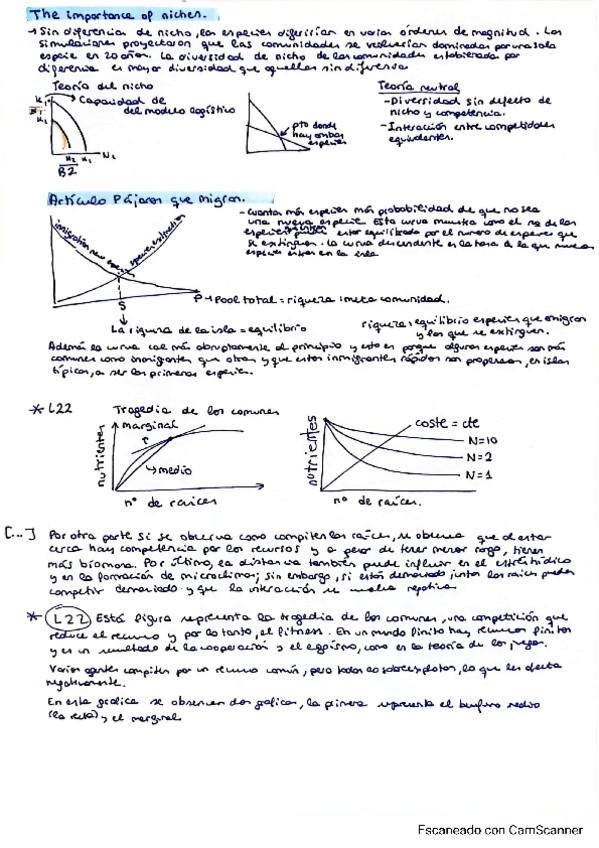 The importance of niches.
→ Sin diferencia de nicho, las especies diferirían en varios órdenes de magnitud. Las
simulaciones proyectaron que las comunidades se volverían dominadas por una sola
especie en 20 años. La diversidad de nicho de las comunidades estabilizada por
diferencia es mayor diversidad que aquellas sin diferencia
Teoría del nicho
Teoría neutral
Capacidad de
del modelo logístico
K1
K2
N2
B2
pto donde
hay ambas
especies
- Diversidad sin defecto de
nicho y competencia.
- Interacción entre competidores
equivalentes.
Artículo Pájaros que migran.
inmigration new species
species extinction
S
- Cuantas más especies más probabilidad de que no sea
una nueva especie. Esta curva muestra como el nº de las
especies estar equilibrada por el numero de especies que
se extinguen. La curva descendente es la tasa de la que nuevas
especies entran en la isla
P → Pool total = riqueza : meta comunidad.
La riqueza de la isla = equilibrio
riqueza: equilibrio especies que emigran
y las que se extinguen.
Además la curva cae más abruptamente al principio y esto es porque algunas especies son más
comunes como inmigrantes que otras y que estos inmigrantes rápidos son propensos, en islas
típicas, a ser los primeros especies.
* L22 Tragedia de los comunes
nutrientes
marginal
medio
nº de raíces
nutrientes
coste = cte
N=10
N=2
N=1
nº de raíces.
[...] Por otra parte si se observa como compiten las raíces, se observa que al estar
cerca hay competencia por los recursos y a pesar de tener menor riego, tienen
más biomasa. Por último, la distancia también puede influir en el estrés hídrico
y en la formación de microclimas; sin embargo, si están demasiado juntos las raíces pueden
competir demasiado y que la interacción se vuelva negativa.
* L22 Está figura representa la tragedia de los comunes, una competición que
reduce el recurso y por lo tanto, el fitness. En un mundo finito hay recursos finitos
y es un resultado de la cooperación o el egoísmo, como en la teoría de los juegos.
Varios agentes compiten por un recurso común, pero todos lo sobreexplotan, lo que les afecta
negativamente.
En esta gráfica se observan dos gráficas, la primera representa el beneficio medio
(la recta) y el marginal
Escaneado con CamScanner